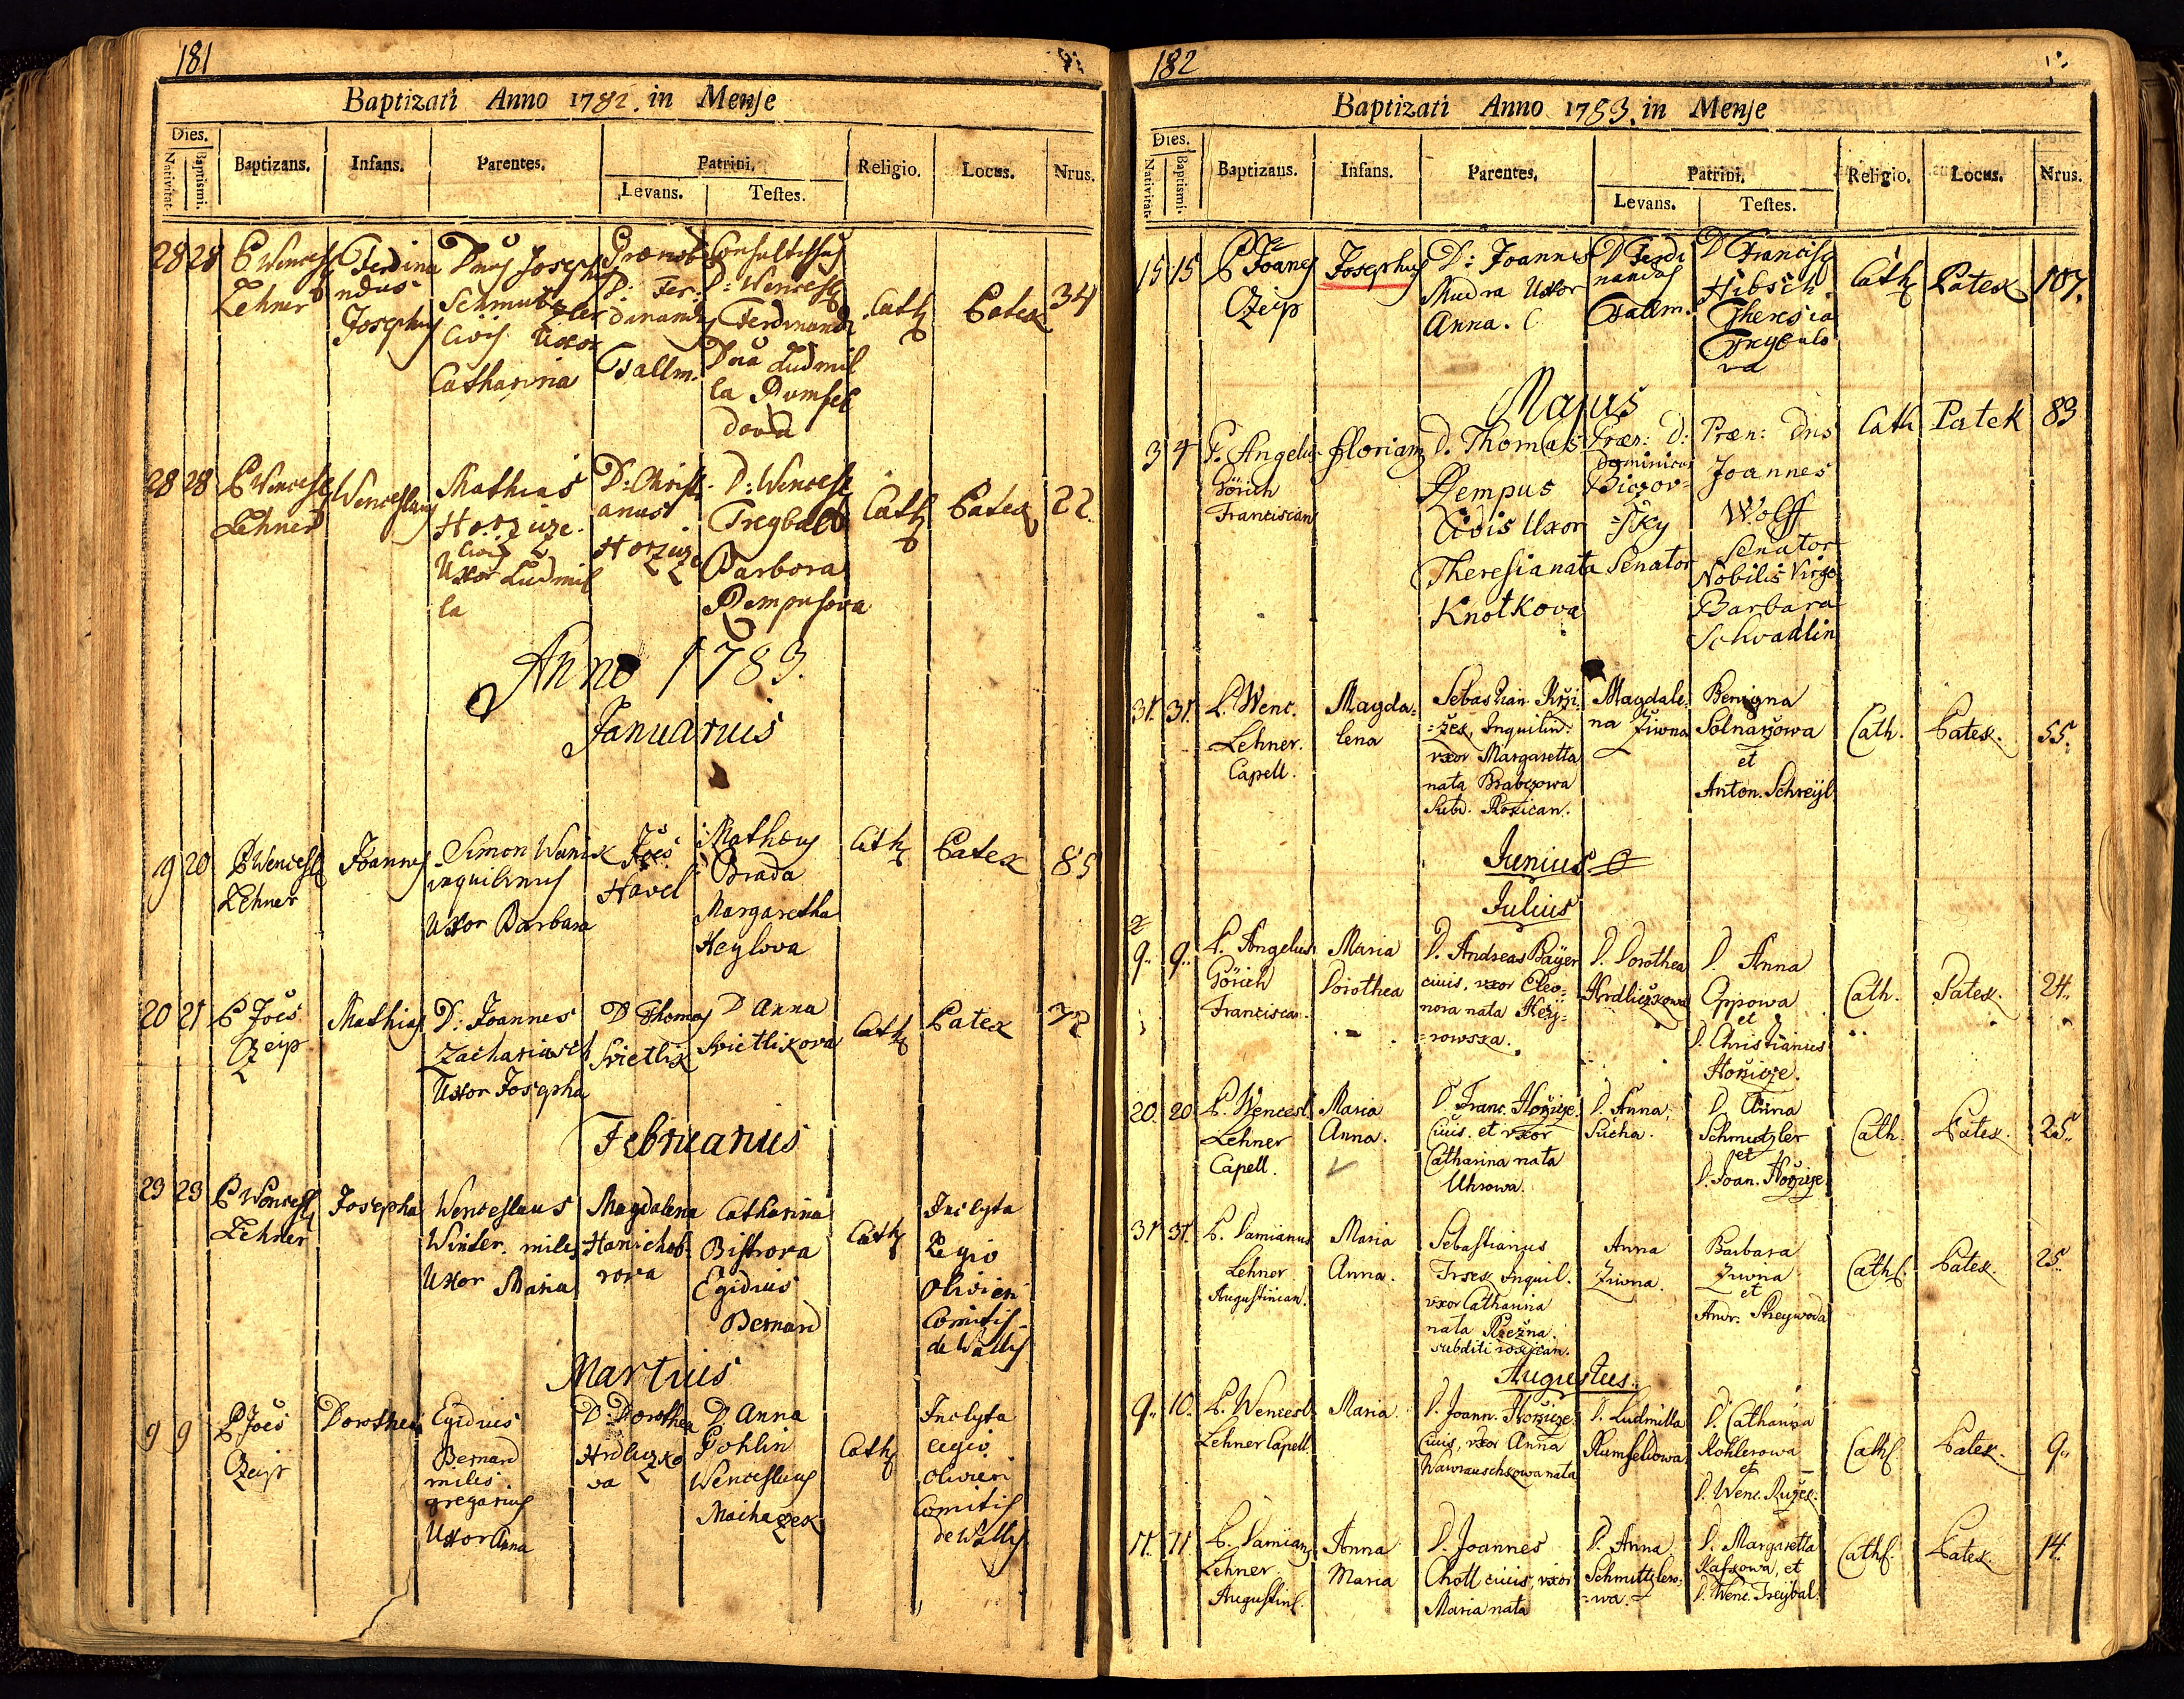 181
Baptizati Anno 1782. in Mense
Dies.
Nativitat.
Baptismi.
Baptizans.
Infans.
Parentes.
Patrini.
Levans.
Testes.
Religio.
Locus.
Nrus.
28 28
P Wencesl
Lehner
Ferdina
ndus
Josephus
Dnus Josephus
Schmutzler
Civis Uxor
Catharina
Prænob
D: Fer
dinandus
Tallm.
Consultissus
D: Wencesl
Ferdinandi
Dna Ludmil
la Rumfel
dova
Cath
Patek
34
28 28
P Wencesl
Lehner
Wenceslaus
Mathias
Horzize
Civis
Uxor Ludmil
la
D: Christi
anus
Horzize
D: Wencesl
Tregbal
Barbora
Rempusova
Cath
Patek
22
Anno 1783.
Januarius
19 20
P Wencesl
Lehner
Joannes
Simon Wanik
inquilinus
Uxor Barbara
Joes
Havel
Matheus
Brada
Margaretha
Heylova
Cath
Patek
85
20 21
P Joes
Czeip
Mathias
D: Joannes
Zachariasch
Uxor Josepha
D Thomas
Svietlik
D Anna
Svietlikova
Cath
Patek
Februarius
23 23
P Wencesl
Lehner
Josepha
Wenceslaus
Winter miles
Uxor Maria
Magdalena
Hanichob
rova
Catharina
Bistrova
Egidius
Bernard
Cath
Inclyta
Legio
Olivieri
Comitis
de Wallis
Martius
9 9
P Joes
Czeip
Dorothea
Egidius
Bernard
miles
gregarius
Uxor Anna
D: Dorothea
Hrdliczko
va
D Anna
Pohlin
Wenceslaus
Machazek
Cath
Inclyta
Legio
Olivieri
Comitis
de Wallis
182
Baptizati Anno 1783. in Mense
Dies.
Nativitat.
Baptismi.
Baptizans.
Infans.
Parentes.
Patrini.
Levans.
Testes.
Religio.
Locus.
Nrus.
15 15
P Joanes
Czeip
Josephus
D: Joannes
Mudra Uxor
Anna.
D Ferdi
nandus
Tallm.
D Francisc
Hibsch
Theresia
Tregbalo
va
Cath
Patek
107.
Majus
3 4
P. Angelus
Görich
Franciscan
Florian
D. Thomas
Rempus
Civis Uxor
Theresia nata
Knotkova
Præn: D:
Dominicus
Biczov=
=sky
Senator
Præn: Dns
Joannes
Wolff
Senator
Nobilis Virgo
Barbara
Schvadlin
Cath
Patek
83
31. 31.
P. Wenc.
Lehner.
Capell.
Magda=
lena
Sebastian Krzi
=zek, Inquilin.
uxor Margaretta
nata Brabcowa
Subd. Rozican.
Magdale
na Ziwna
Benigna
Solnarzowa
et
Anton. Schreÿb
Cath.
Patek.
55.
Junius
Julius
9. 9.
P. Angelus
Görich
Franciscan.
Maria
Dorothea
D. Andreas Baÿer
civis, uxor Eleo=
nora nata Keÿ=
=rowska.
D. Dorothea
Hrdliczkowa
D. Anna
Oppowa
et
D. Christianus
Horzize.
Cath.
Patek.
24.
20. 20
P. Wencesl.
Lehner
Capell.
Maria
Anna.
D. Franc. Horzize.
Civis. et uxor
Catharina nata
Uhrowa.
D. Anna
Sucha.
D. Anna
Schmutzler
et
D. Joan. Horzize
Cath.
Patek.
25.
31 31.
P. Damianus
Lehner
Augustinian.
Maria
Anna.
Sebastianus
Trsek Inquil.
uxor Catharina
nata Rzezna.
subditi rozican.
Anna
Ziwna.
Barbara
Ziwna
et
Andr. Streywoda
Cath.
Patek.
25.
Augustus.
9. 10.
P. Wencesl.
Lehner Capell.
Maria.
D. Joann. Horzize.
Civis, uxor Anna
Wawrauschkowa nata
D. Ludmilla
Rumfeldowa
D. Catharina
Kohlerowa
et
D. Wenc. Ružek.
Cath.
Patek.
9.
11. 11.
P. Damian
Lehner
Augustin.
Anna
Maria
D. Joannes
Chott civis, uxor
Maria nata
D. Anna
Schmittzlero=
=wa.
D. Margaretta
Kafkowa, et
D. Wenc. Treÿbal.
Cath.
Patek.
14.